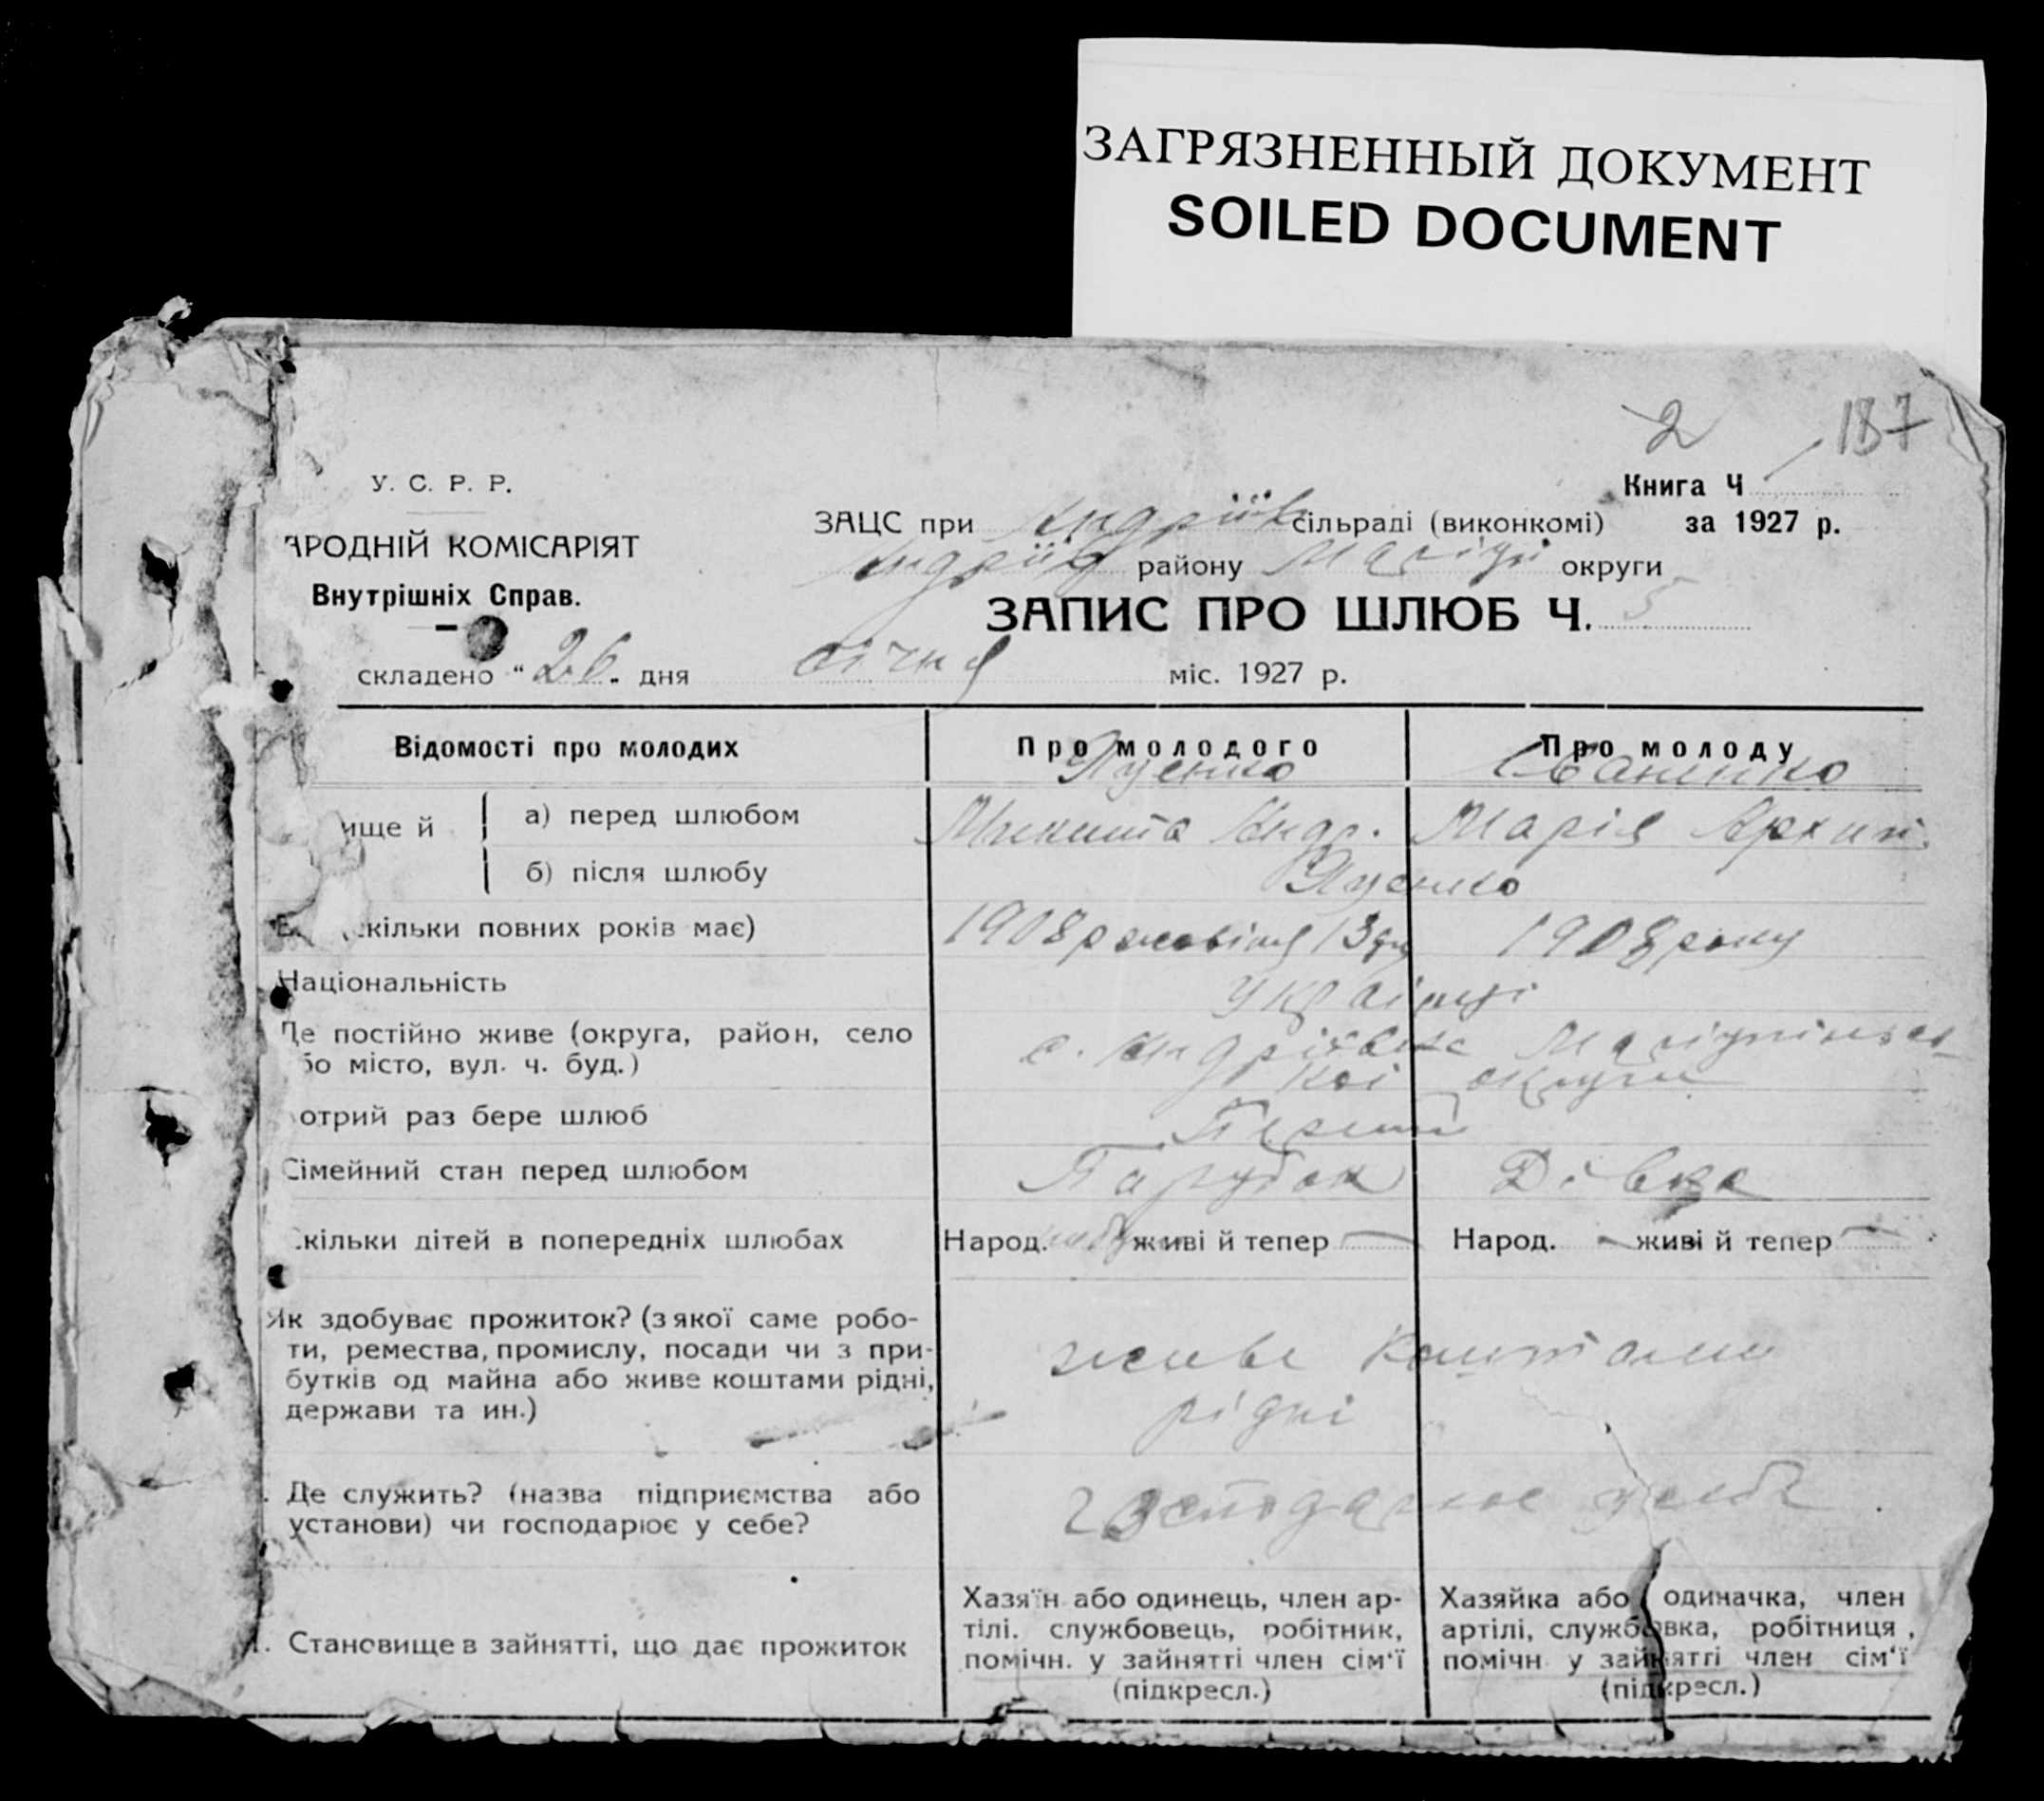 ЗАГРЯЗНЕННЫЙ ДОКУМЕНТ
SOILED DOCUMENT
2 187
У. С. Р. Р.
Книга Ч
АРОДНІЙ КОМІСАРІЯТ
Внутрішніх Справ.
ЗАЦС при Андріїв сільраді (виконкомі) за 1927 р.
Андріїв району Маріуп округи
ЗАПИС ПРО ШЛЮБ Ч. 5
складено "26" дня січня міс. 1927 р.
Відомості про молодих Про молодого Про молоду
Іваненко
ище й а) перед шлюбом Микита Андр. Марія Архип.
б) після шлюбу
кільки повних років має) 1908 р жовтня 13 дня 1908 року
Національність українці
Де постійно живе (округа, район, село с. Андріївка Маріупільсь
бо місто, вул. ч. буд.) кої округи
отрий раз бере шлюб Перший
Сімейний стан перед шлюбом Парубок Дівка
Скільки дітей в попередніх шлюбах Народ. живі й тепер — Народ. — живі й тепер —
Як здобуває прожиток? (з якої саме робо-
ти, ремества, промислу, посади чи з при- живе коштами
бутків од майна або живе коштами рідні, рідні
держави та ин.)
Де служить? (назва підприємства або господарює у себе
установи) чи господарює у себе?
Становище в зайнятті, що дає прожиток
Хазяїн або одинець, член ар-
тілі. службовець, робітник,
помічн. у зайнятті член сім'ї
(підкресл.)
Хазяйка або одиначка, член
артілі, службовка, робітниця,
помічн у зайнятті член сім'ї
(підкресл.)